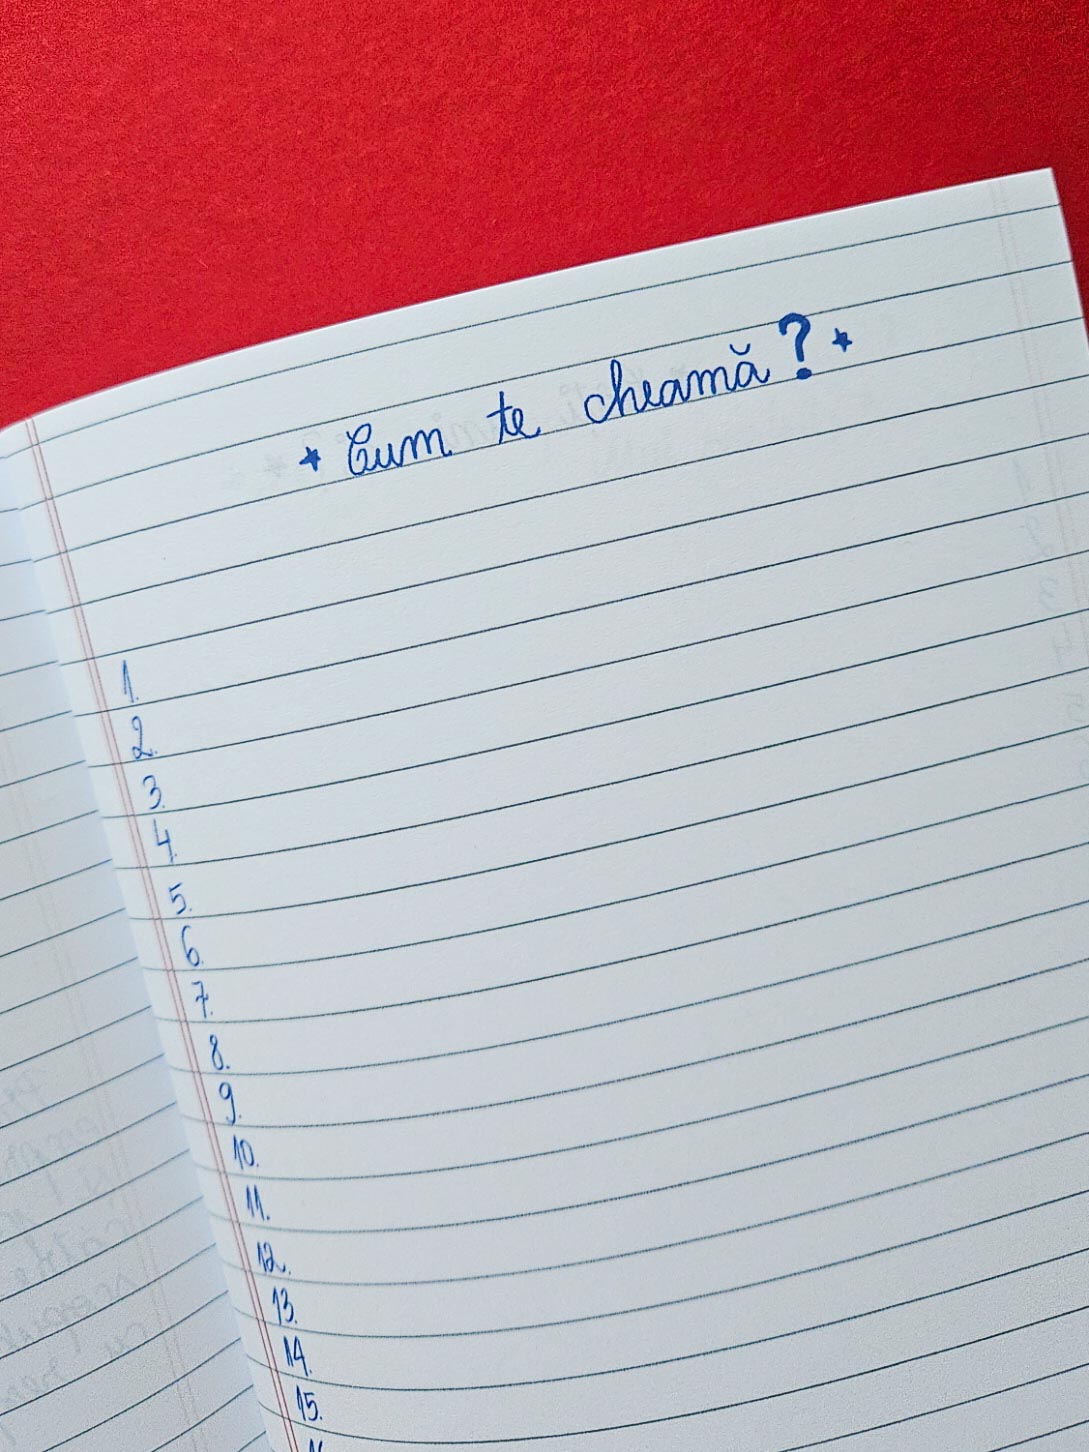 * Cum te cheamă? *
1.
2.
3.
4.
5.
6.
7.
8.
9.
10.
11.
12.
13.
14.
15.